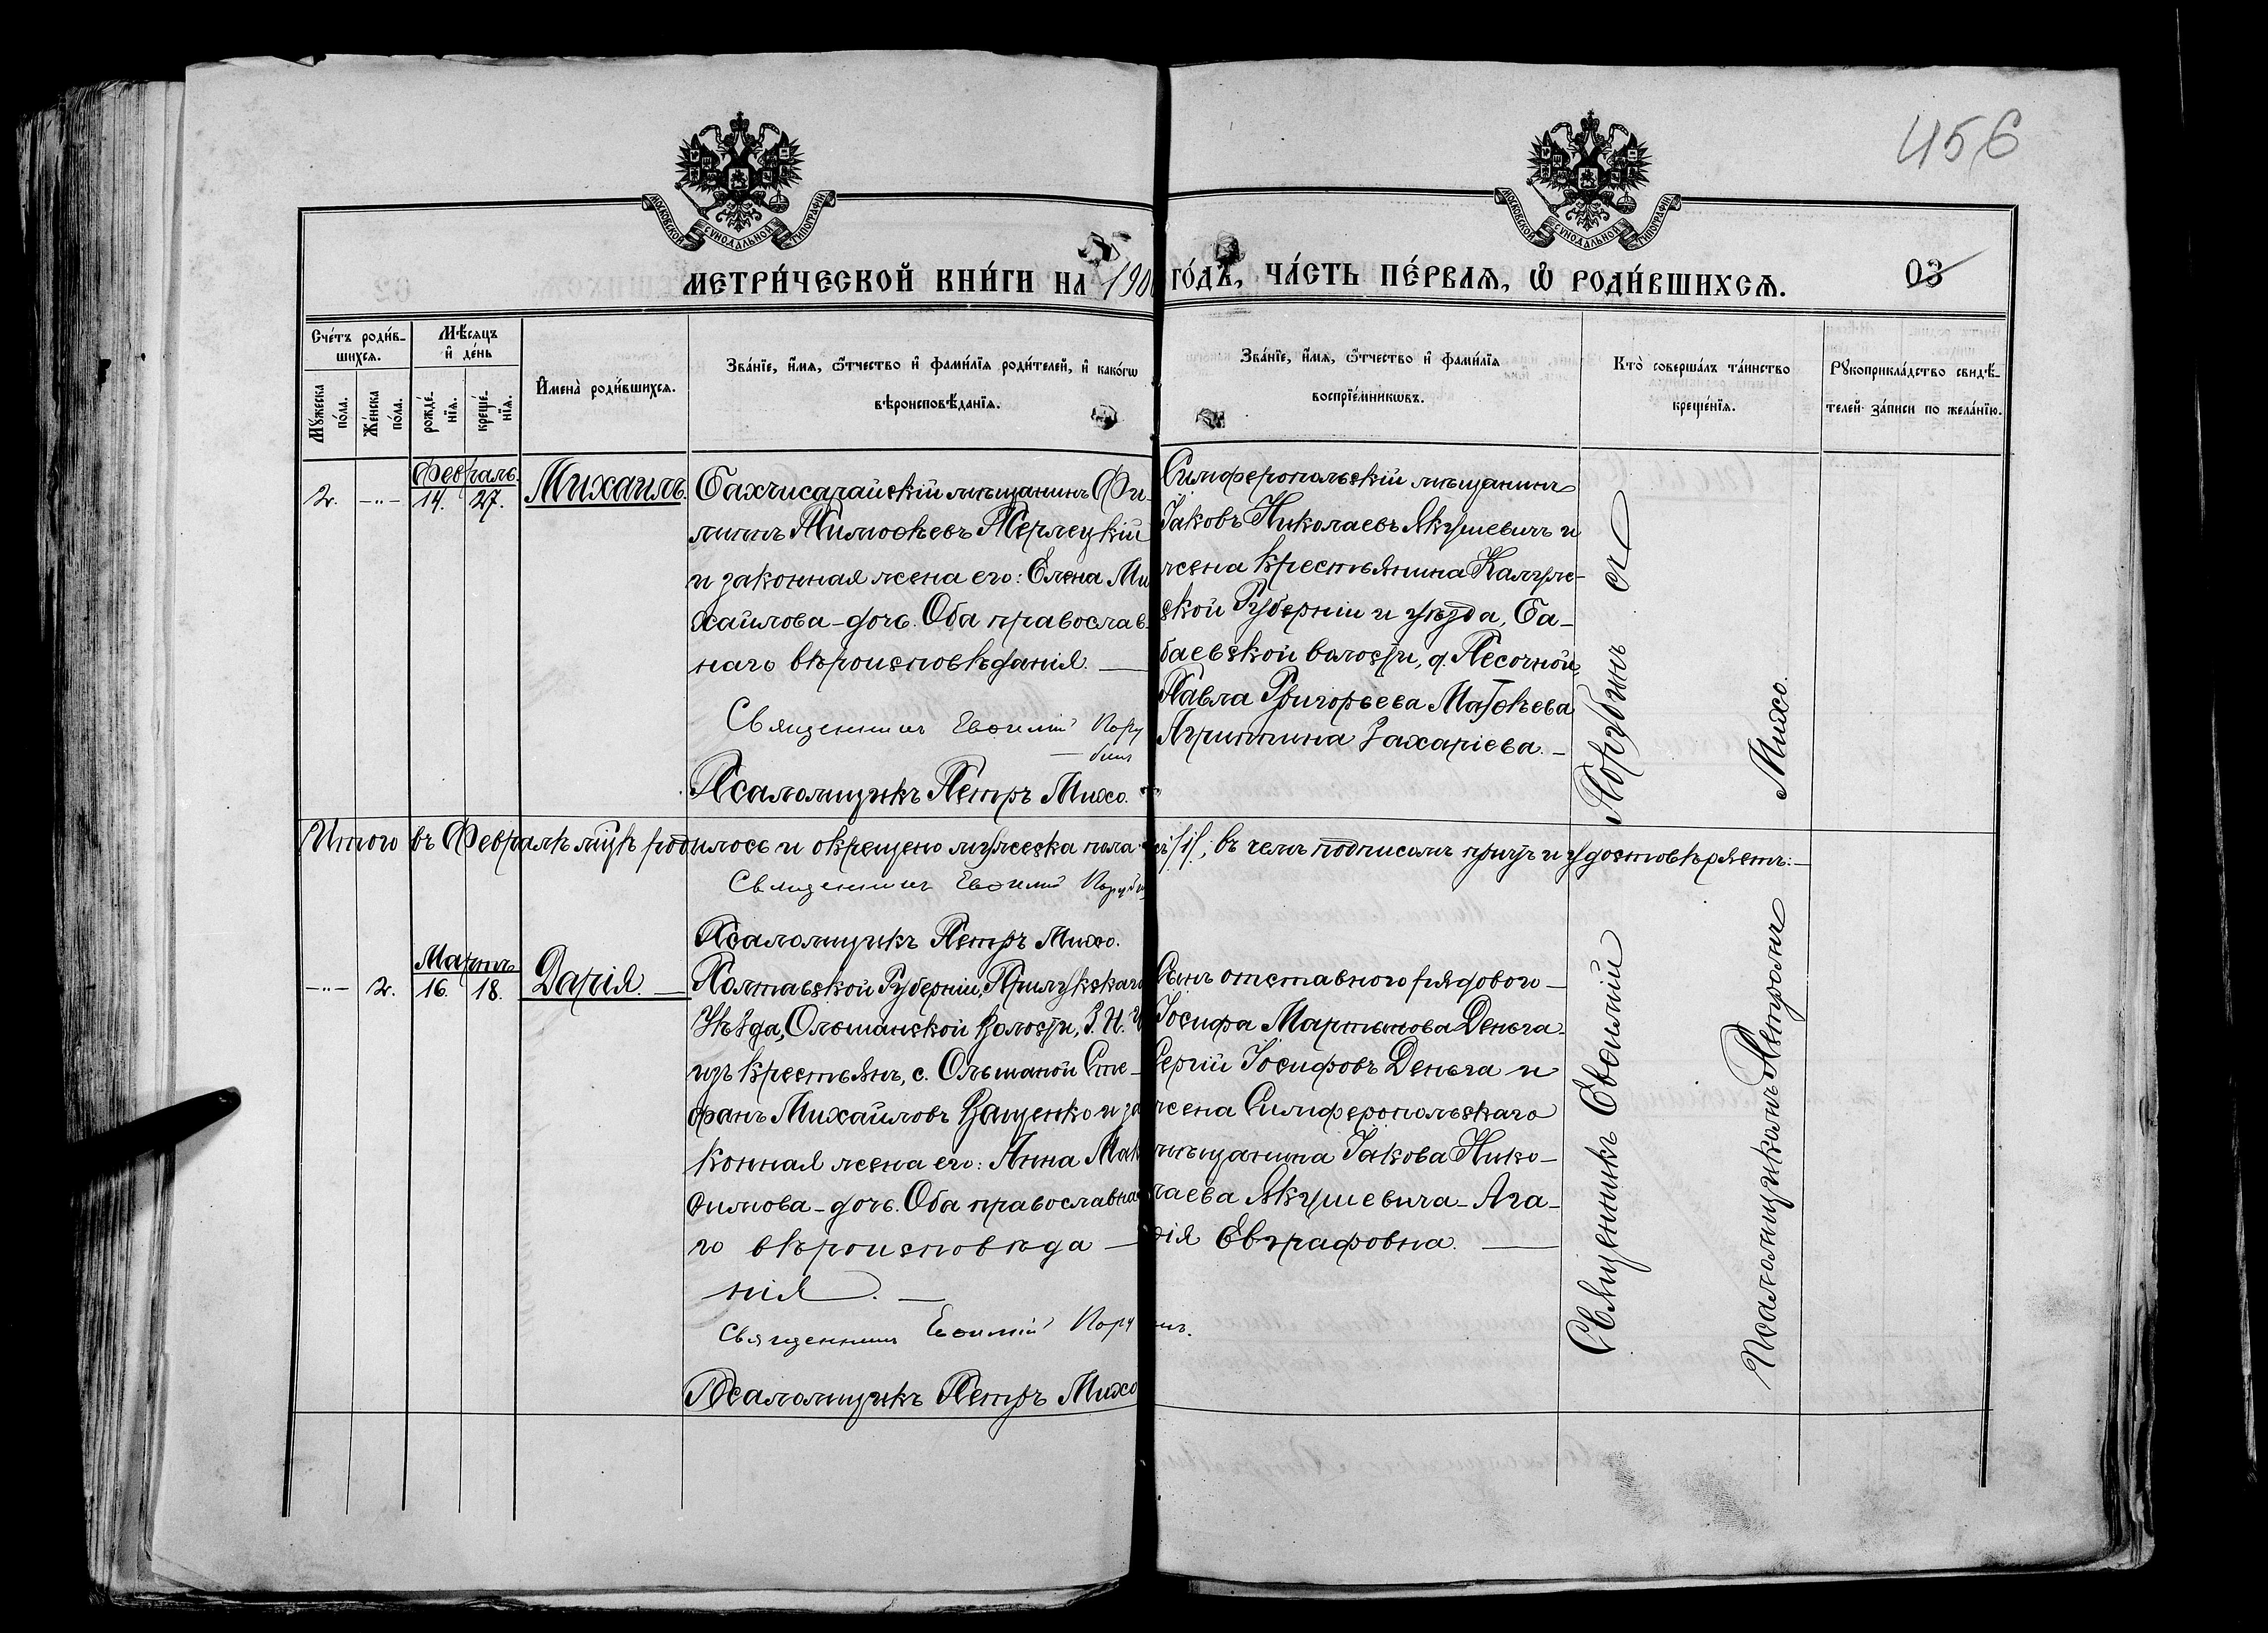 456
МОСКОВСКОЙ СѴНОДАЛЬНОЙ ТИПОГРАФІИ
МОСКОВСКОЙ СѴНОДАЛЬНОЙ ТИПОГРАФІИ
МЕТРИ́ЧЕСКОЙ КНИ́ГИ НА 190
ГО́ДЪ, ЧА́СТЬ ПЕ́РВАѦ, Ѽ РОДИ́ВШИХСѦ.
03
Сче́тъ роди́в-
шихсѧ.
Мѣ́сѧцъ
и҆ де́нь
Мꙋ́жеска
по́ла.
Же́нска
по́ла.
рожде́-
нїѧ.
креще́-
нїѧ.
И҆мена̀ роди́вшихсѧ.
Зва́нїе, и҆́мѧ, ѻ҆́тчество и҆ фами́лїѧ роди́телей, и҆ како́гѡ
вѣроисповѣ́данїѧ.
Зва́нїе, и҆́мѧ, ѻ҆́тчество и҆ фами́лїѧ
воспрїе́мникѡвъ.
Кто̀ соверша́лъ та́инство
креще́нїѧ.
Рꙋкоприкла́дство свидѣ́-
телей за́писи по жела́нїю.
Февраль.
2. -„- 14. 27. Михаилъ.
Бахчисарайскій мѣщанинъ Фи-
липпъ Тимоѳеевъ Терлецкій
и законная жена его: Елена Ми
хаилова-дочь. Оба православ-
наго вѣроисповѣданія. —
Священникъ Евѳимій Пору
бинъ
Псаломщикъ Петръ Михо.
Симферопольскій мѣщанинъ
Іаковъ Николаевъ Якушевичъ и
жена крестьянина Калуж-
ской Губерніи и уѣзда, Ба-
баевской волости, д. Песочной,
Павла Григорьева Матѳѣева
Агриппина Захаріева. —
Итого въ Февралѣ мцѣ родилось и окрещено мужеска пола
/1/, въ чемъ подписомъ причтъ и удостовѣряетъ: —
Священникъ Евѳимій Поруби
Псаломщикъ Петръ Михо.
Мартъ
-„- 2. 16. 18. Дарія. —
Полтавской Губерніи, Прилукскаго
Уѣзда, Ольшанской Волости,
изъ крестьянъ, с. Ольшаной Сте-
фанъ Михаиловъ Ващенко и за
конная жена его: Анна Мак
симова-дочь. Оба православна
го вѣроисповѣда —
нія. —
Священникъ Евѳимій Пору инъ.
Псаломщикъ Петръ Михо
Сынъ отставного рядового —
Іосифа Мартынова Деньга-
Сергій Іосифовъ Деньга и
жена Симферопольскаго
мѣщанина Іакова Нико-
лаева Якушевича-Ага-
фія Евграфовна. —
Священникъ Евѳимій Порубинъ съ
Псаломщикомъ Петромъ Михо.